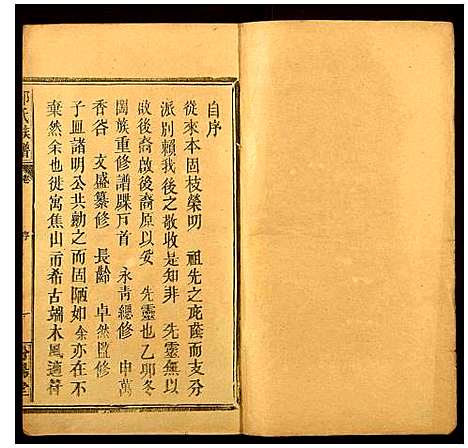 自序
從來本固枝榮叨　祖先之庇蔭而支分
派別賴我後之敬收是知非　先靈無以
啟後裔啟後裔原以妥　先靈也乙卯冬
闔族重修譜牒戶首　永青總修　申萬
香谷　文盛纂修　長齡　卓然監修
子皿諸明公共勷之而固陋如余亦在不
棄然余也徙寓焦山而希古端木風適符
氏族譜
卷
序
一
汾陽堂